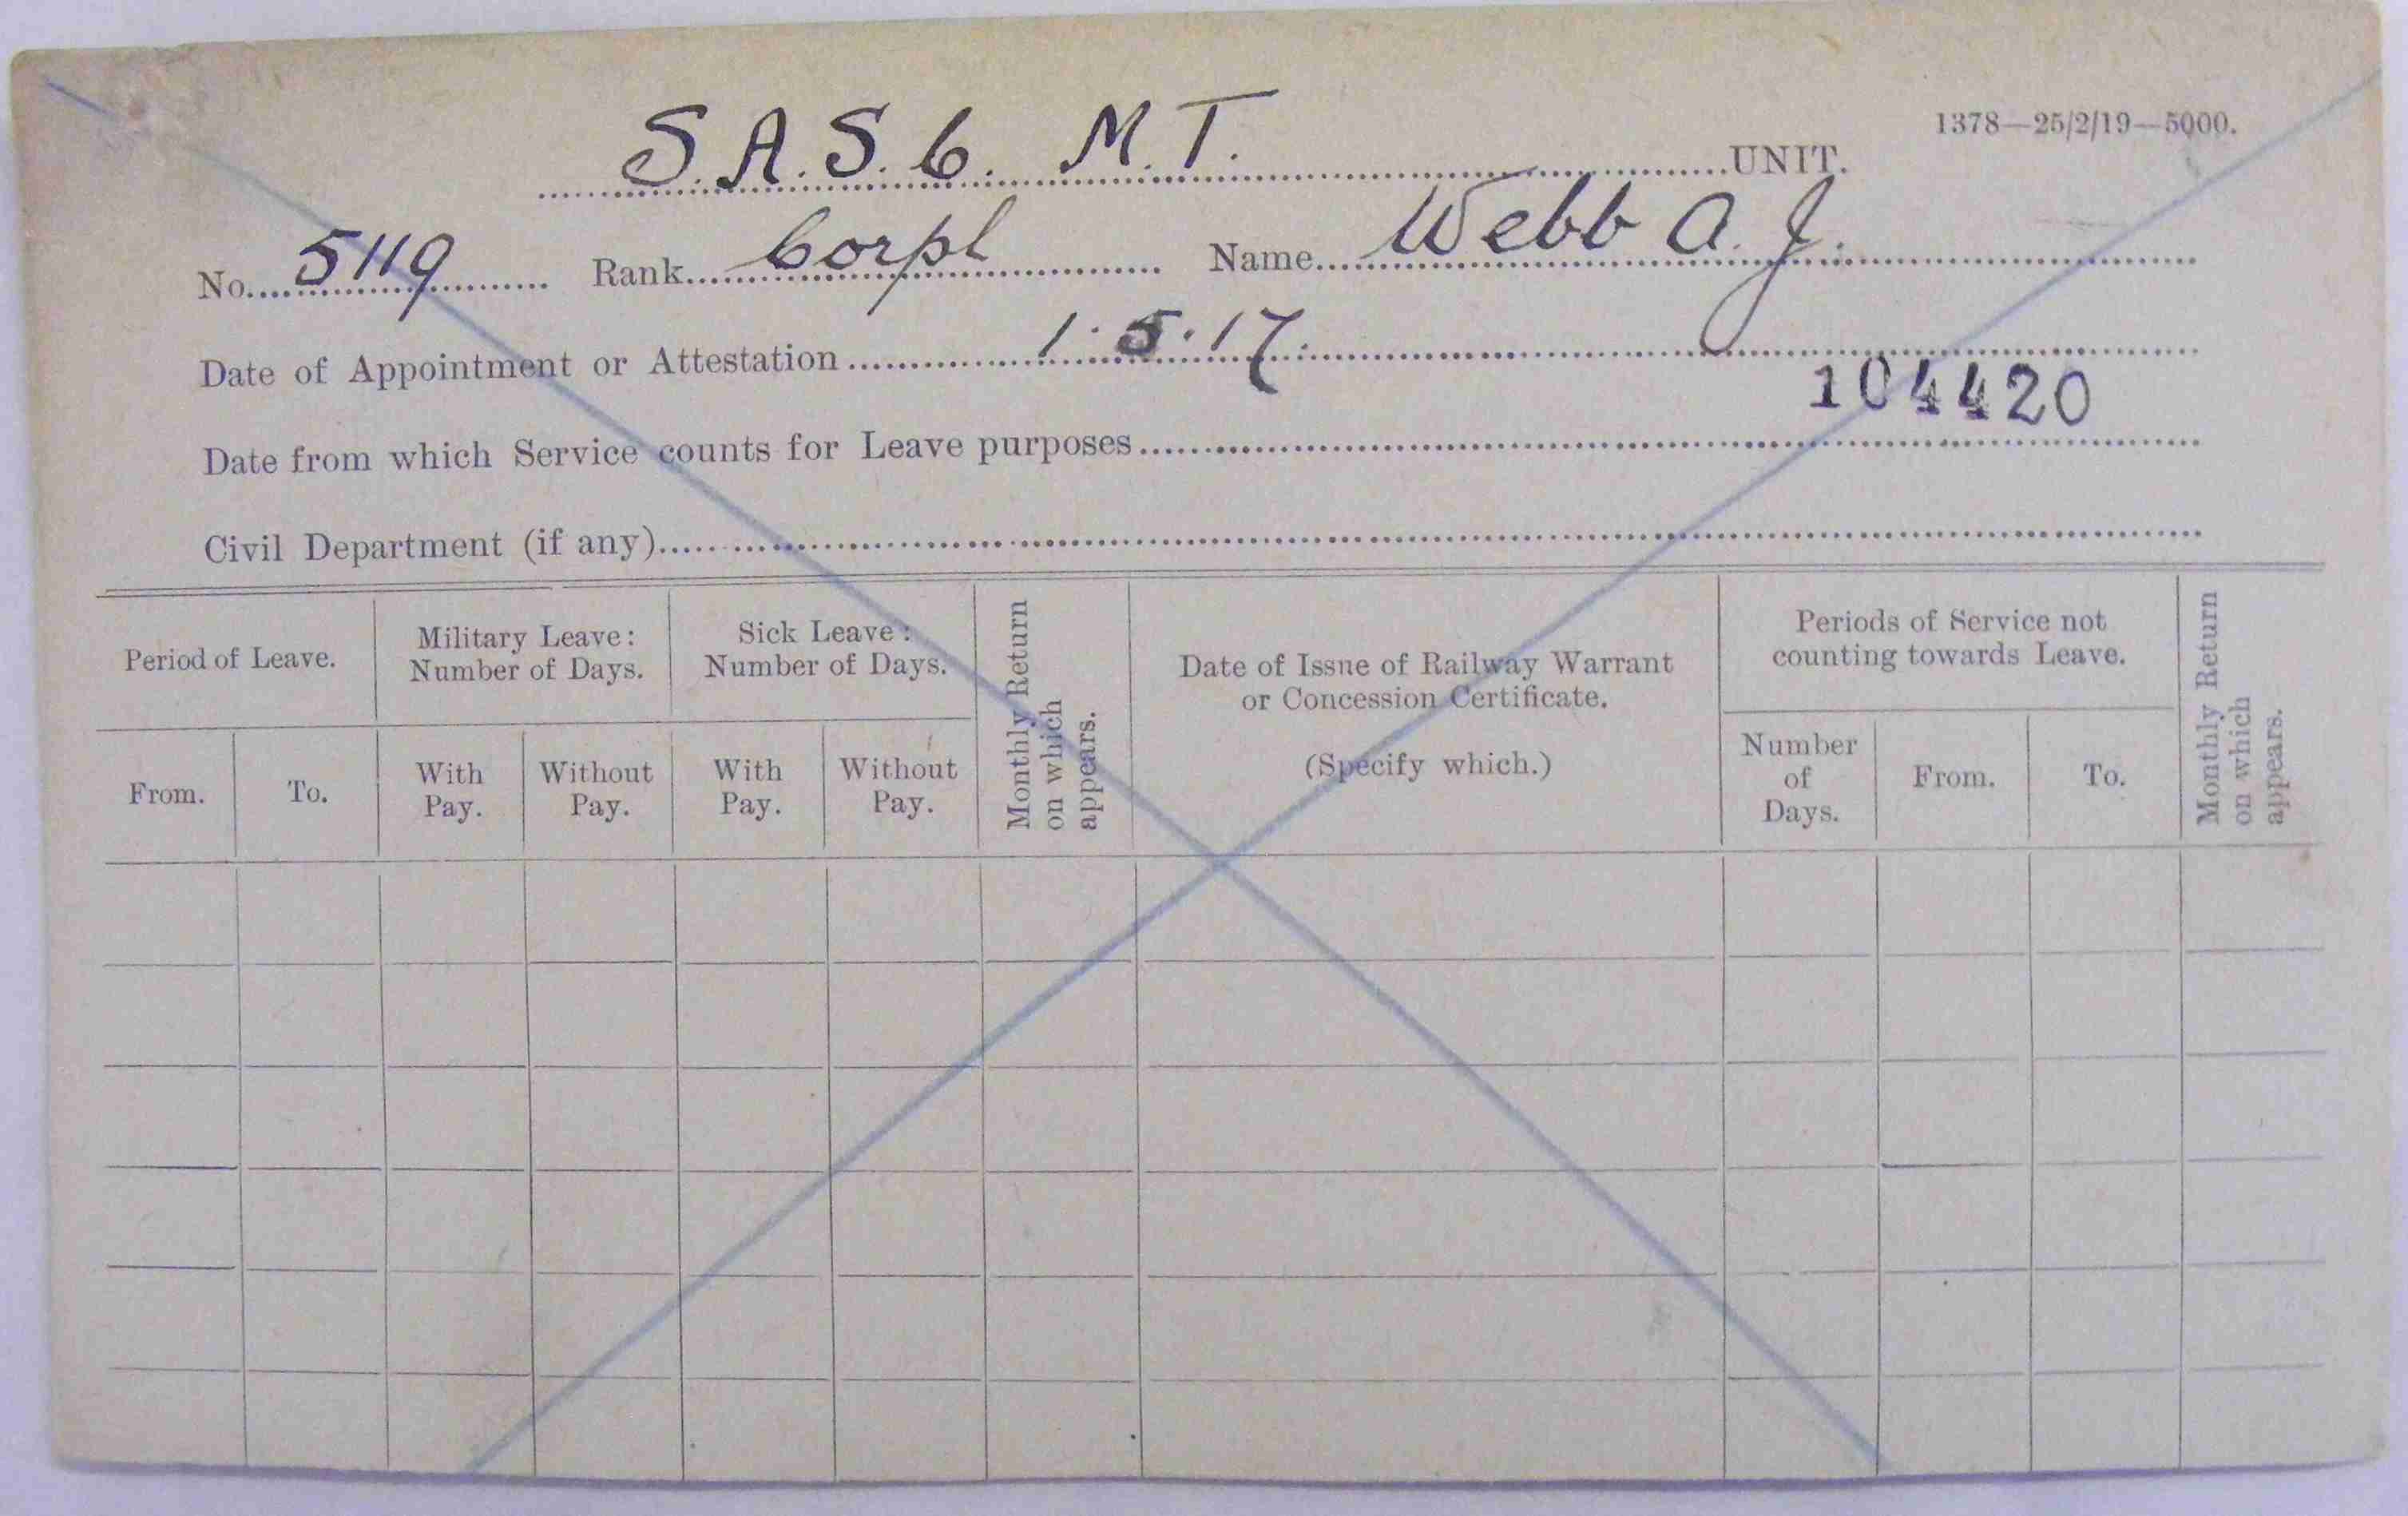 1378—25/2/19—5000.
S.A.S.C. M.T. UNIT.
No. 5119 Rank Corpl Name Webb A. J.
Date of Appointment or Attestation 1.5.17.
104420
Date from which Service counts for Leave purposes
Civil Department (if any)
Period of Leave.
Military Leave:
Number of Days.
Sick Leave:
Number of Days.
Monthly Return
on which
appears.
Date of Issue of Railway Warrant
or Concession Certificate.
(Specify which.)
Periods of Service not
counting towards Leave.
Monthly Return
on which
appears.
From.
To.
With
Pay.
Without
Pay.
With
Pay.
Without
Pay.
Number
of
Days.
From.
To.